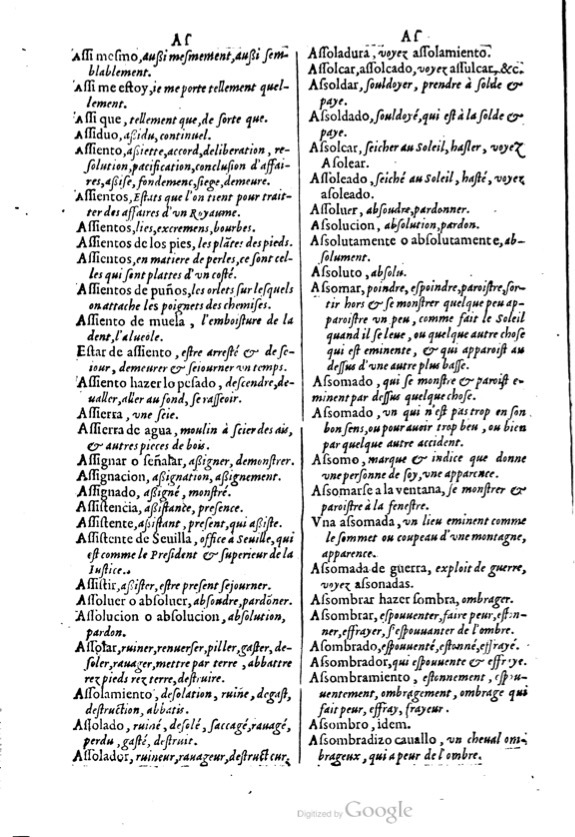 AS
Assi mesmo, aussi mesmement, aussi sem-
blablement.
Assi me estoy, ie me porte tellement quel-
lement.
Assi que, tellement que, de sorte que.
Assiduo, assidu, continuel.
Assiento, assiette, accord, deliberation, re-
solution, pacification, conclusion d'affai-
res, assise, fondement, siege, demeure.
Assientos, Estats que l'on tient pour trait-
ter des affaires d'vn Royaume.
Assientos, lies, excremens, bourbes.
Assientos de los pies, les plātes des pieds.
Assientos, en matiere de perles, ce sont cel-
les qui sont plattes d'vn costé.
Assientos de puños, les orlets sur lesquels
on attache les poignets des chemises.
Assiento de muela, l'emboisture de la
dent, l'alueole.
Estar de assiento, estre arresté & de se-
iour, demeurer & seiourner vn temps.
Assiento hazer lo pesado, descendre, de-
ualler, aller au fond, se rasseoir.
Assierra, vne scie.
Assierra de agua, moulin à scier des ais,
& autres pieces de bois.
Assignar o señalar, assigner, demonstrer.
Assignacion, assignation, assignement.
Assignado, assigné, monstré.
Assistencia, assistance, presence.
Assistente, assistant, present, qui assiste.
Assistente de Seuilla, office à Seuille, qui
est comme le President & superieur de la
Iustice.
Assistir, assister, estre present sejourner.
Assoluer o absoluer, absoudre, pardōner.
Assolucion o absolucion, absolution,
pardon.
Assolar, ruiner, renuerser, piller, gaster, de-
soler, rauager, mettre par terre, abbattre
rez pieds rez terre, destruire.
Assolamiento, desolation, ruine, degast,
destruction, abbatis.
Assolado, ruiné, desolé, saccagé, rauagé,
perdu, gasté, destruit.
Assolador, ruineur, rauageur, destructeur.
AS
Assoladura, voyez assolamiento.
Assolcar, assolcado, voyez assulcar, &c.
Assoldar, souldoyer, prendre à solde &
paye.
Assoldado, souldoyé, qui est à la solde &
paye.
Assolear, seicher au Soleil, hasler, voyez
Asolear.
Assoleado, seiché au Soleil, haslé, voyez
asoleado.
Assoluer, absoudre, pardonner.
Assolucion, absolution, pardon.
Assolutamente o absolutamente, ab-
solument.
Assoluto, absolu.
Assomar, poindre, espoindre, paroistre, sor-
tir hors & se monstrer quelque peu ap-
paroistre vn peu, comme fait le Soleil
quand il se leue, ou quelque autre chose
qui est eminente, & qui apparoist au
dessus d'vne autre plus basse.
Assomado, qui se monstre & paroist e-
minent par dessus quelque chose.
Assomado, vn qui n'est pas trop en son
bon sens, ou pour auoir trop beu, ou bien
par quelque autre accident.
Assomo, marque & indice que donne
vne personne de soy, vne apparence.
Assomarse a la ventana, se monstrer &
paroistre à la fenestre.
Vna assomada, vn lieu eminent comme
le sommet ou coupeau d'vne montagne,
apparence.
Assomada de guerra, exploit de guerre,
voyez assonadas.
Assombrar hazer sombra, ombrager.
Assombrar, espouuenter, faire peur, eston-
ner, effrayer, s'espouuanter de l'ombre.
Assombrado, espouuenté, estonné, effrayé.
Assombrador, qui espouuente & effraye.
Assombramiento, estonnement, espou-
uentement, ombragement, ombrage qui
fait peur, effray, frayeur.
Assombro, idem.
Assombradizo cauallo, vn cheual om-
brageux, qui a peur de l'ombre.
Digitized by Google